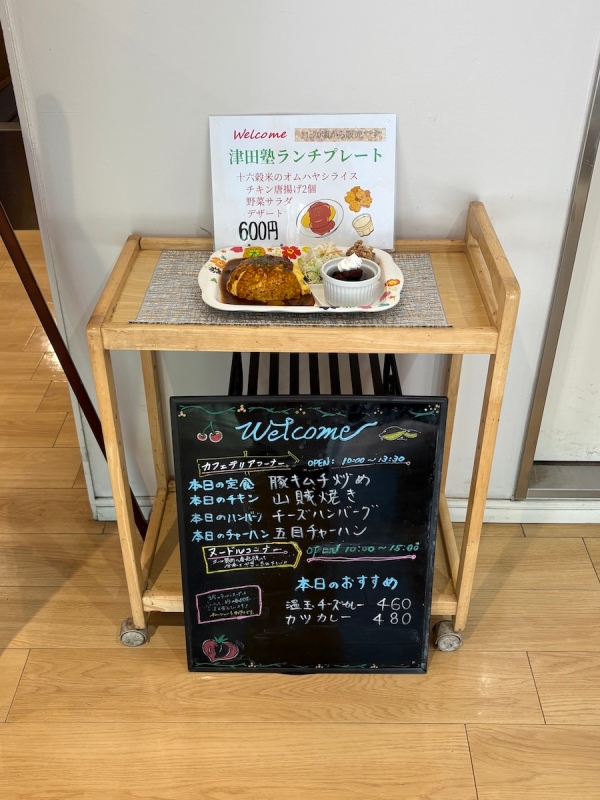 Welcome
津田塾ランチプレート
十六穀米のオムハヤシライス
チキン唐揚げ2個
野菜サラダ
デザート
600円
Welcome
カフェテリアコーナー OPEN: 10:00～13:30
本日の定食 豚キムチ炒め
本日のチキン 山賊焼き
本日のハンバーグ チーズハンバーグ
本日のチャーハン 五目チャーハン
ヌードルコーナー OPEN 10:00～15:00
本日のおすすめ
温玉チーズカレー 460
カツカレー 480